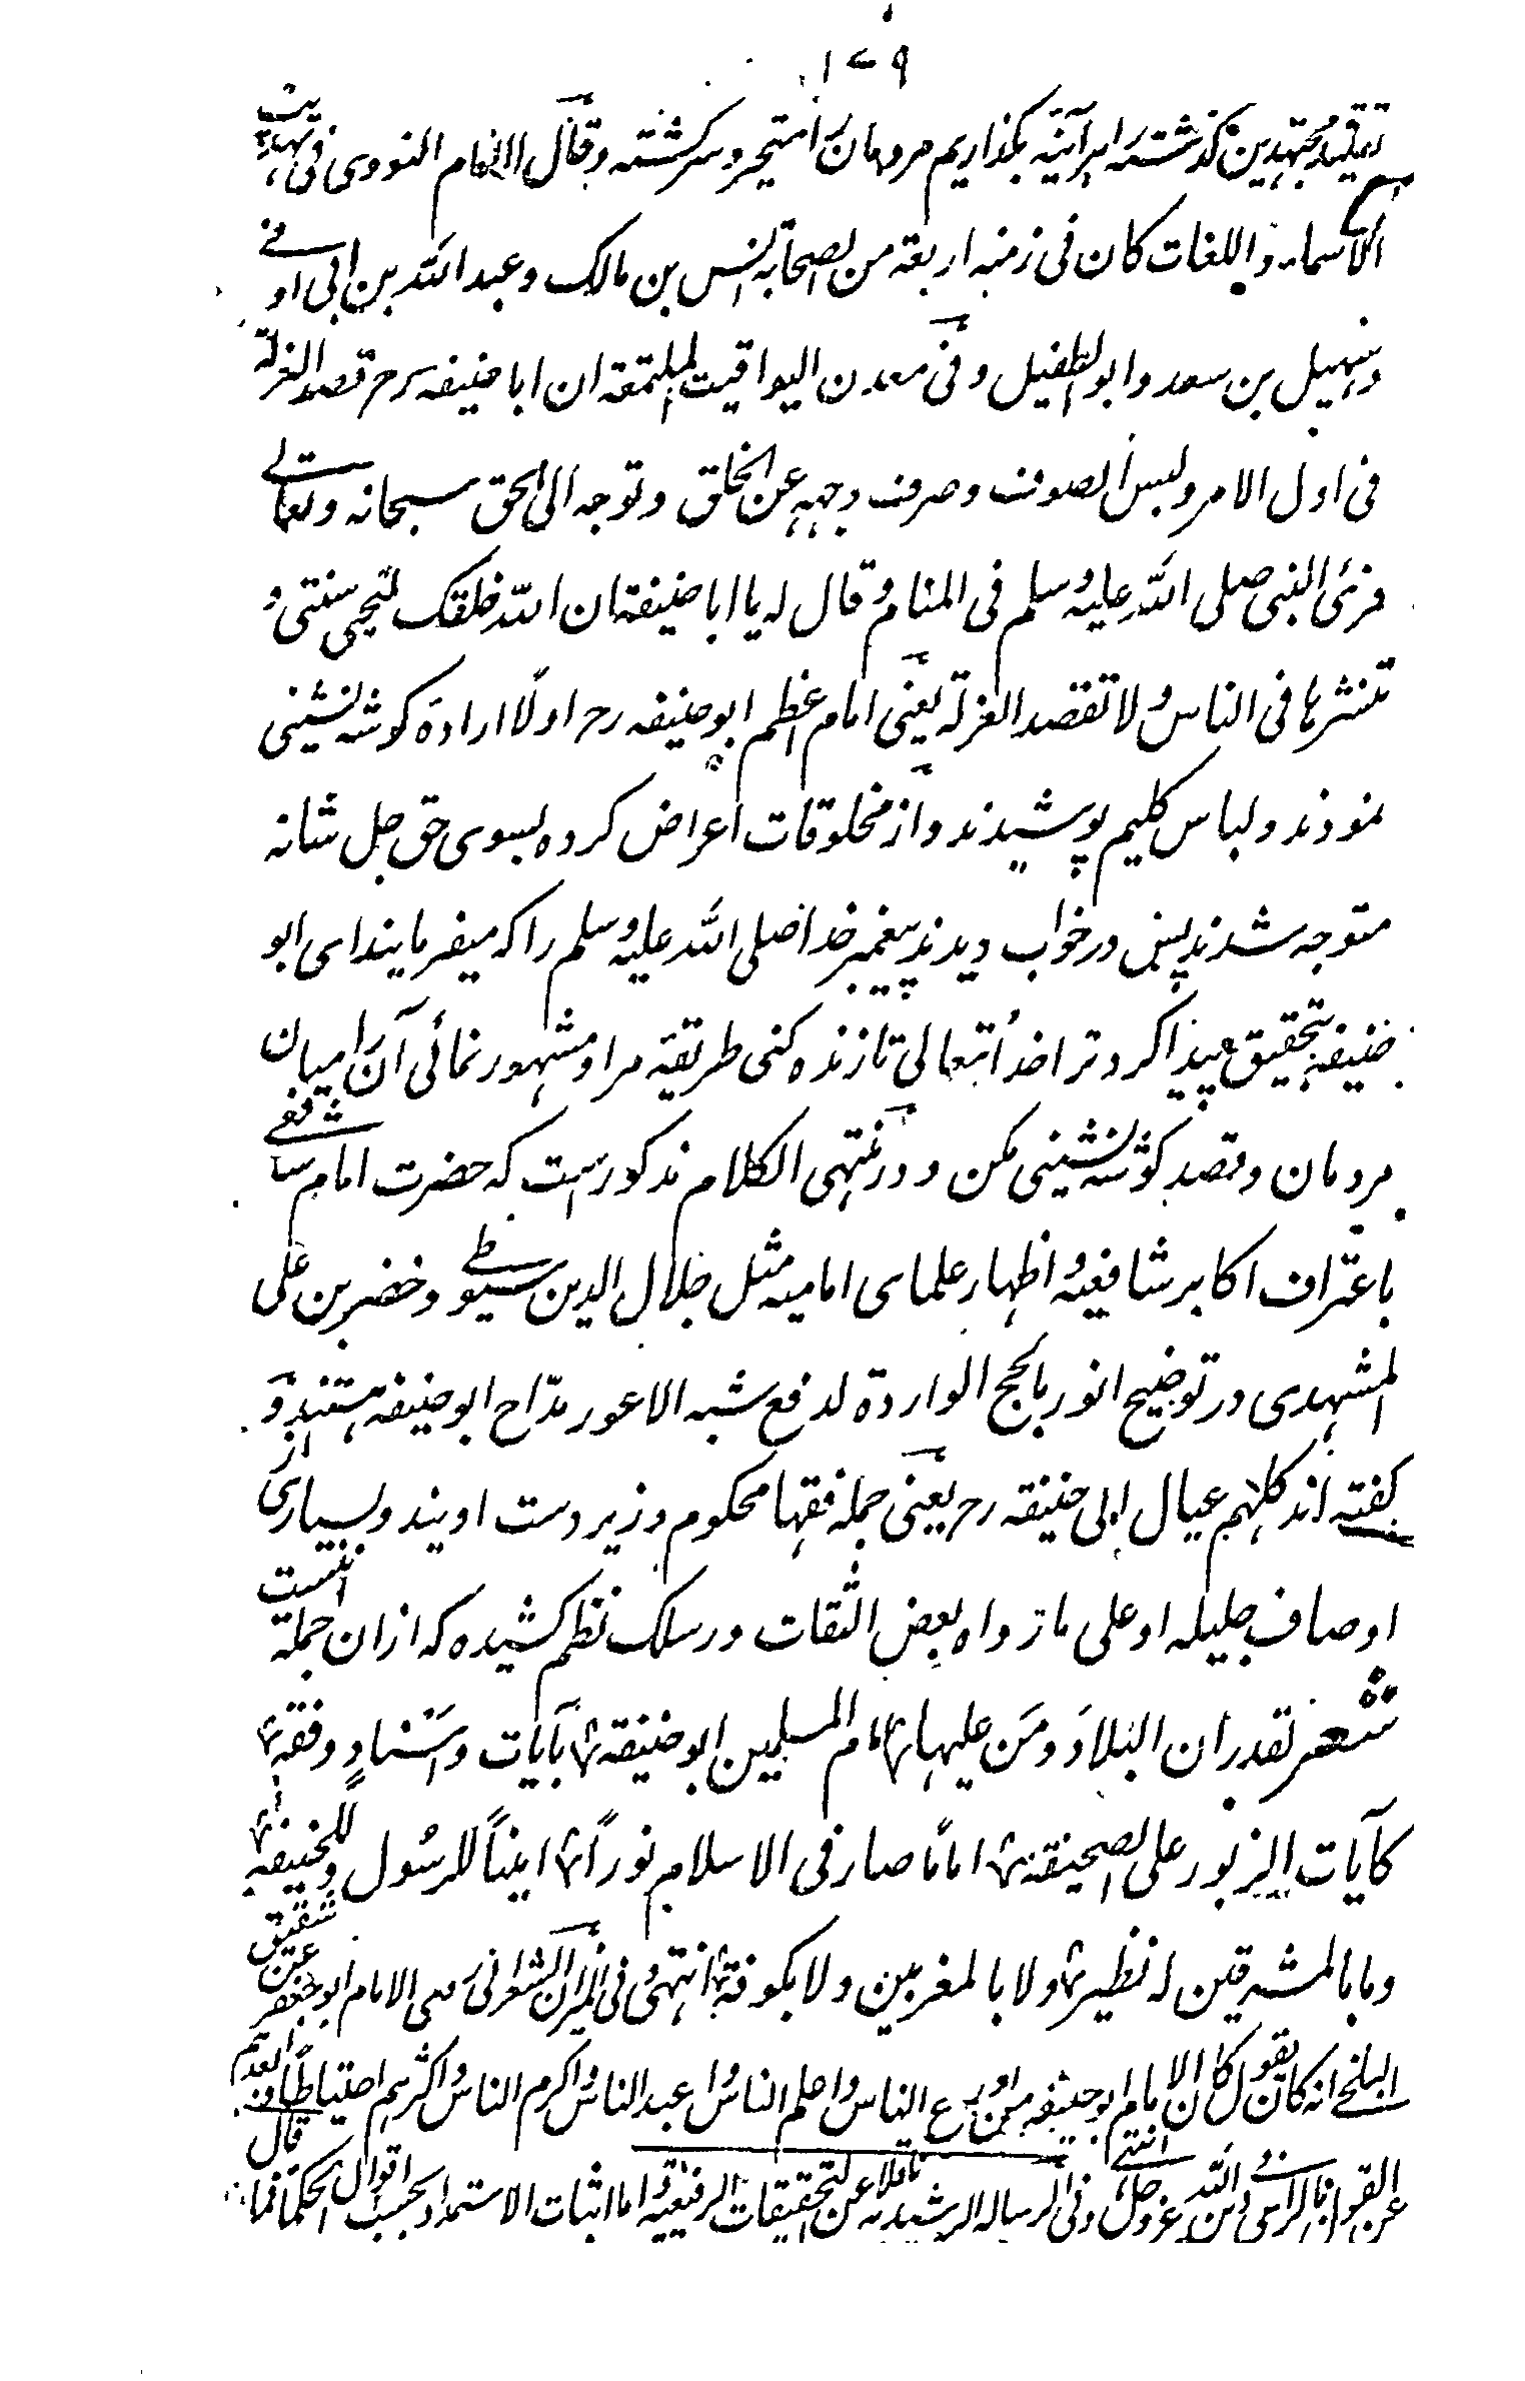 ۱۷۹
تقلید مجتهدین گذشته هرآئینه بگذاریم مردمان را متحیر و سرگشته وقال الامام النووی فی تهذیب
الاسماء واللغات کان فی زمنه اربعة من الصحابه انس بن مالک وعبد الله بن ابی اوفی
وسهیل بن سعد وابو الطفیل وفی معدن الیواقیت الملتمعه ان ابا حنیفه رح قصد العزلة
فی اول الامر ولبس الصوف وصرف وجهه عن الخلق وتوجه الی الحق سبحانه وتعالی
فرئی النبی صلی الله علیه وسلم فی المنام وقال له یا ابا حنیفة ان الله خلقک لتحیی سنتی و
تنشرها فی الناس ولا تقصد العزلة یعنی امام اعظم ابو حنیفه رح اولًا ارادهٔ گوشه نشینی
نمودند ولباس گلیم پوشیدند واز مخلوقات اعراض کرده بسوی حق جل شانه
متوجه شدند پس در خواب دیدند پیغمبر خدا صلی الله علیه وسلم را که میفرمایند ای ابو
حنیفه بتحقیق پیدا کرد ترا خدا تعالی تا زنده کنی طریقه مرا و مشهور نمائی آن را میان
مردمان وقصد گوشه نشینی مکن و در منتهی الکلام مذکورست که حضرت امام شافعی
باعتراف اکابر شافعیه و اظهار علمای امامیه مثل جلال الدین سیوطی وخضر بن علی
المشهدی در توضیح انور بالحجج الواردة لدفع شبه الاعور مدّاح ابو حنیفه هستند و
گفته اند کلهم عیال ابی حنیفه رح یعنی جمله فقها محکوم وزیر دست اویند وبسیاری از
اوصاف جلیله او علی ما رواه بعض الثقات در سلک نظم کشیده که ازان جمله اینست
شعر لقد زان البلاد ومن علیها امام المسلمین ابو حنیفة بآیات واسناد وفقه
کآیات الزبور علی الصحیفة امامًا صار فی الاسلام نورًا امینًا للرسول وللخلیفة
وما بالمشرقین له نظیر ولا بالمغربین ولا بکوفة انتهی وفی المیزان الشعرانی روی الامام ابو جعفر عن شقیق
البلخی انه کان یقول کان الامام ابو حنیفه من اورع الناس واعلم الناس واعبد الناس واکرم الناس واکثرهم احتیاطا فی الدین
عن القول بالرای فی دین الله عز وجل انتهی وفی الرساله الرشیدیه ناقلا عن التحقیقات الرفیعیه اما اثبات الاستمداد بحسب اقوال الحکما فما قال